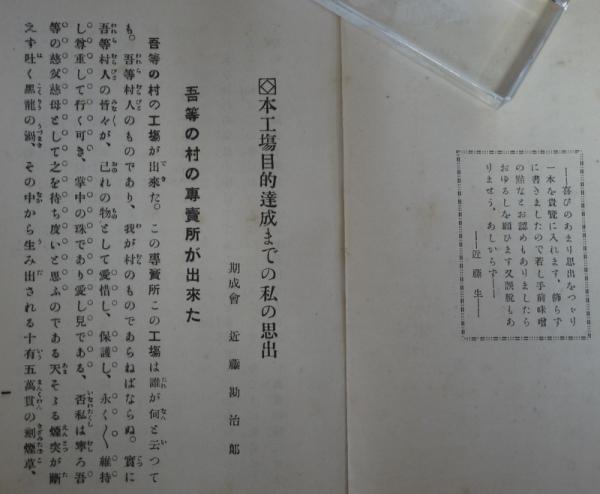 ――喜びのあまり思出をつゞり
一本を貴覽に入れます、飾らず
に書きましたので若し手前味噌
の點などお認めもありましたら
おゆるしを願ひます又誤脱もあ
りませう、あしからず――
――近藤生――
本工場目的達成までの私の思出
期成會 近藤勘治郞
吾等の村の專賣所が出來た
吾等の村の工場が出來た。この專賣所この工場は誰が何と云つて
も。吾等村人のものであり、我が村のものであらねばならぬ。實に
吾等村人の皆々が、己れの物として愛惜し、保護し、永く〳〵維持
し尊重して行く可き、掌中の珠であり愛し兒である、否私は寧ろ吾
等の慈父慈母として之を待ち度いと思ふのである天そゝる煙突が斷
えず吐く黑龍の渦、その中から生み出される十有五萬貫の刻煙草、